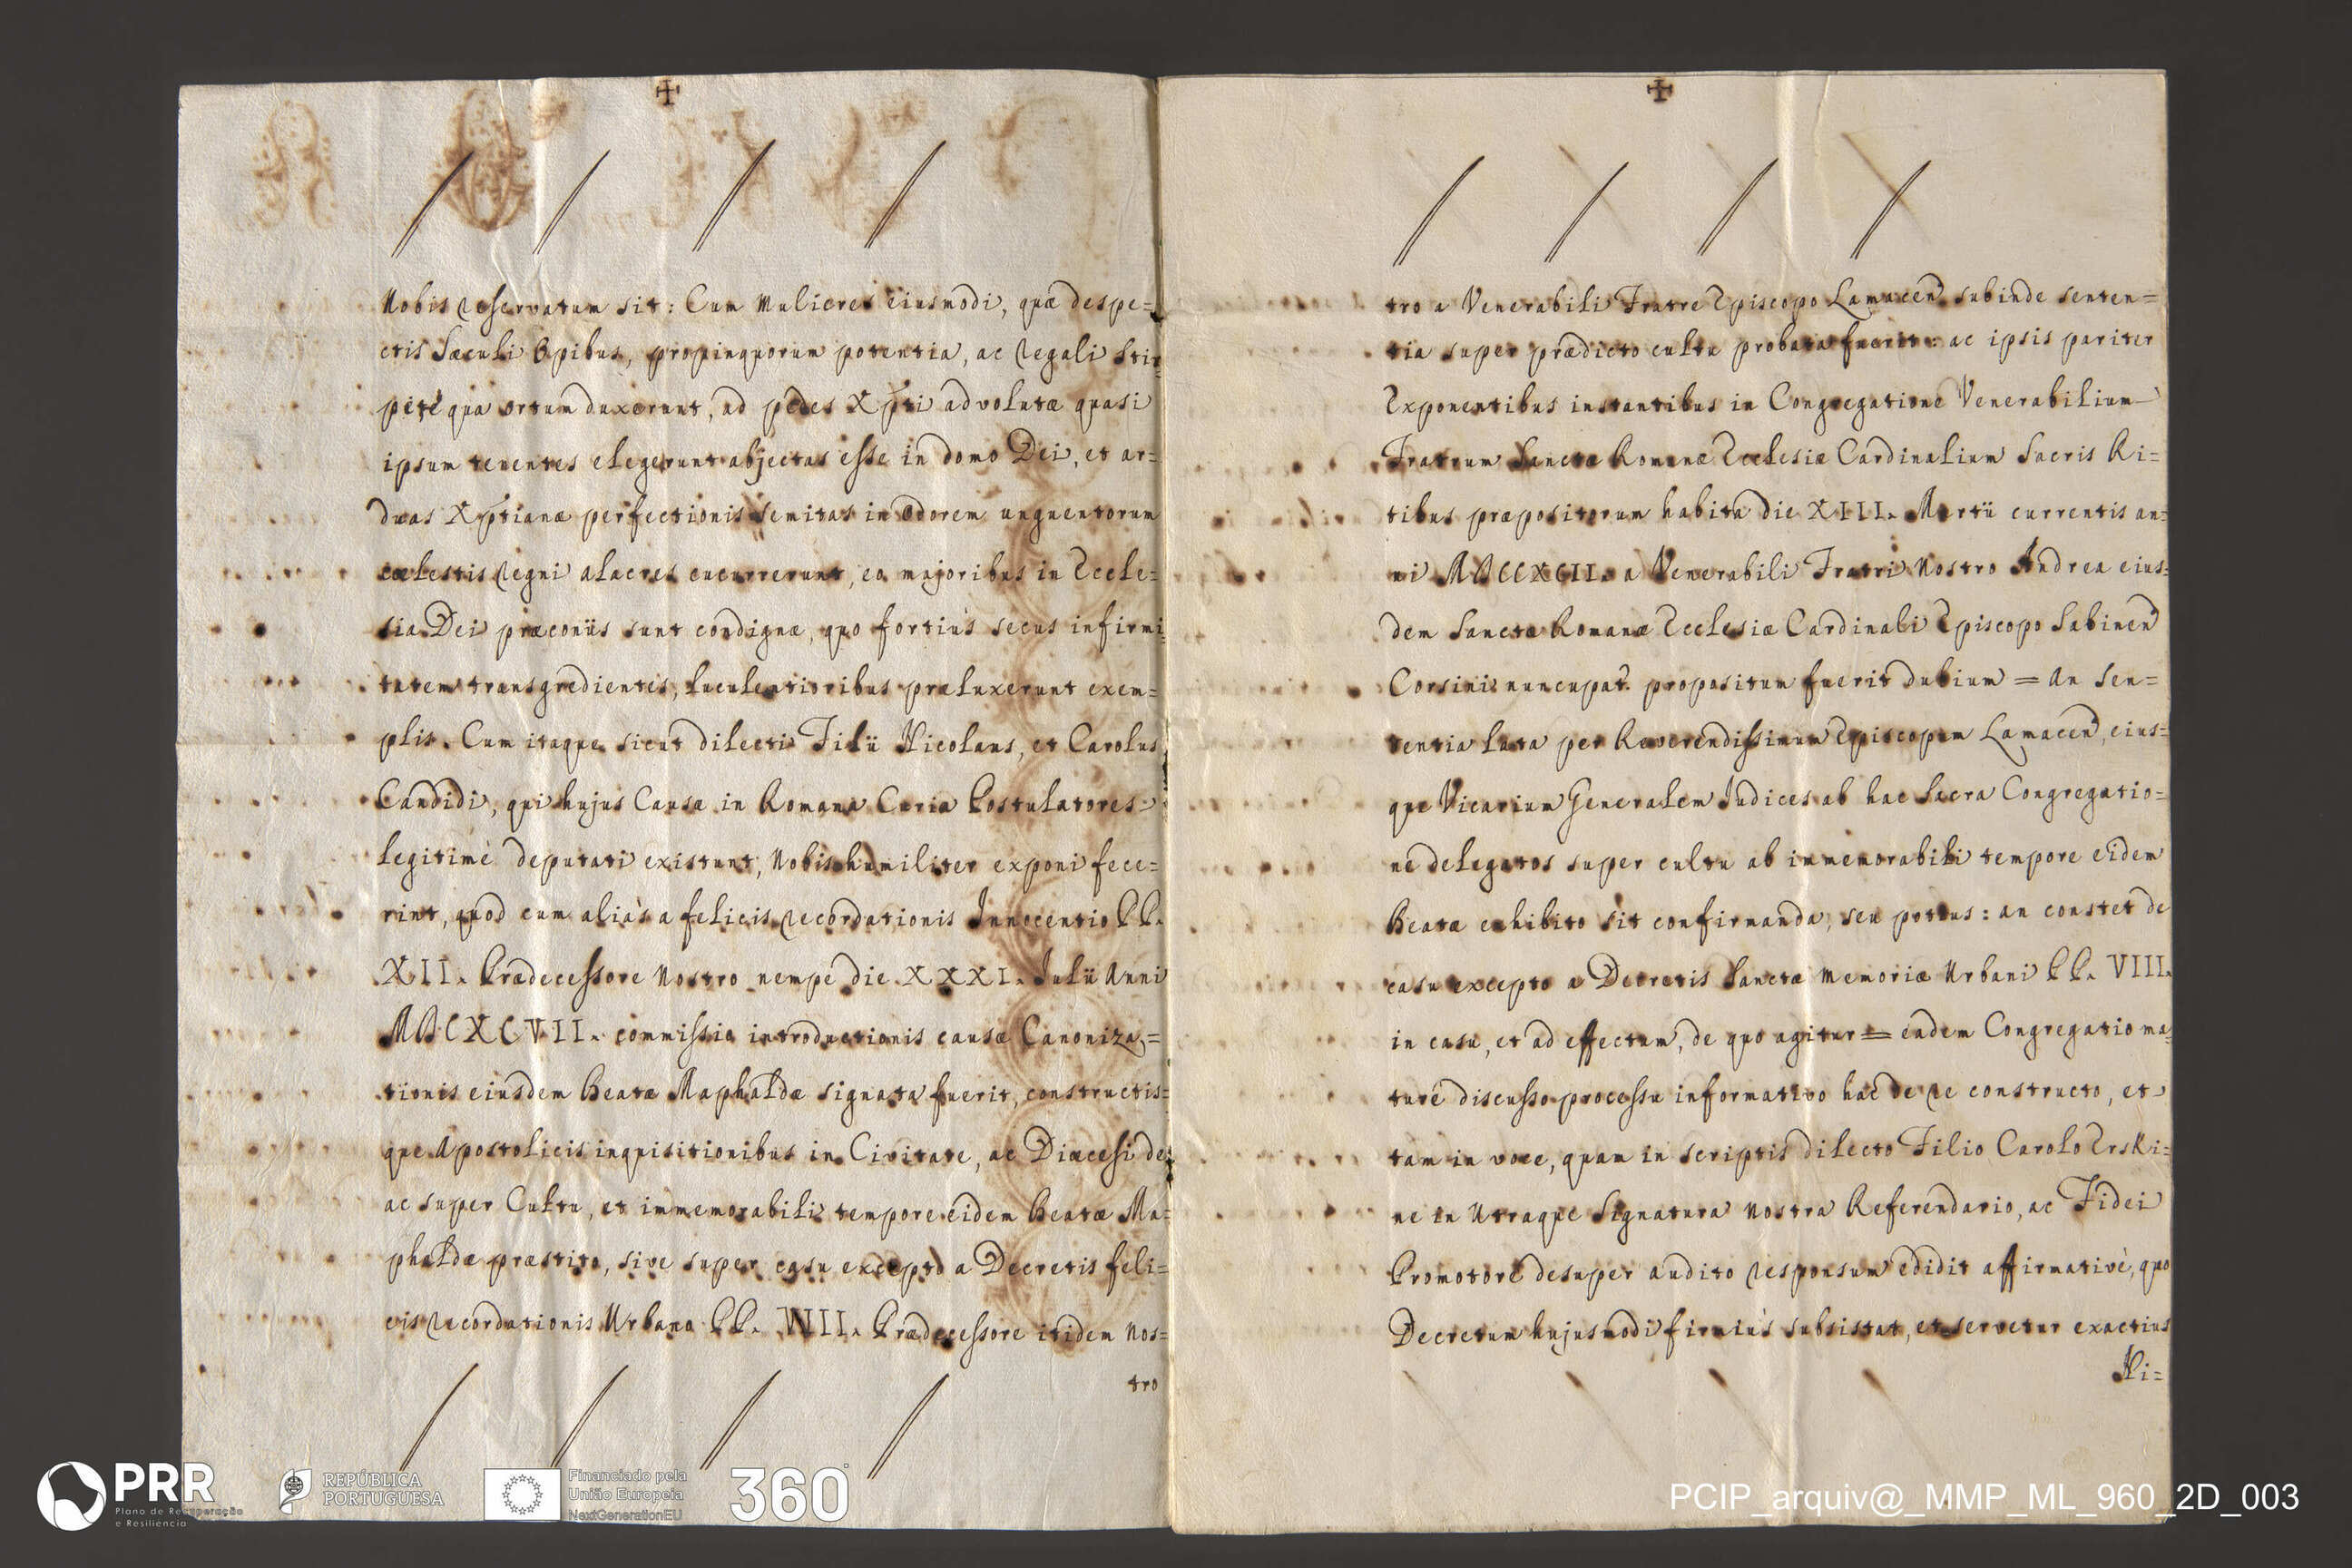 Nobis reservatum sit: Cum Mulieres eiusmodi, quæ despe=
ctis Sæculi Opibus, propinquorum potentia, ac regali Stir=
pite qua ortum duxerunt, ad pedes Xpti advolutæ quasi
ipsum tenentes elegerunt abjectas esse in domo Dei, et ar=
duas Xptianæ perfectionis semitas in odorem unguentorum
cœlestis regni alacres cucurrerunt, eo majoribus in Eccle=
sia Dei præconiis sunt condignæ, quo fortiùs secus infirmi=
tatem transgredientes, luculentioribus præluxerunt exem=
plis. Cum itaque sicut dilecti Filii Nicolaus, et Carolus
Candidi, qui hujus Causæ in Romana Curia Postulatores=
legitimè deputati existunt, Nobis humiliter exponi fece=
rint, quod cum aliàs a felicis recordationis Innocentio PP.
XII. Prædecessore Nostro nempe die XXXI. Julii Anni
MDCXCVII. commissio introductionis causæ Canoniza=
tionis eiusdem Beatæ Maphaldæ signata fuerit, constructis=
que Apostolicis inquisitionibus in Civitate, ac Diœcesi de
ac super Cultu, et immemorabili tempore eidem Beatæ Ma=
phaldæ præstito, sive super casu excepto a Decretis feli=
cis recordationis Urbano PP. VIII. Prædecessore itidem Nos=
tro
tro a Venerabili Fratre Episcopo Lamacen. subinde senten=
tia super prædicto cultu probata fuerit: ac ipsis pariter
Exponentibus instantibus in Congregatione Venerabilium
Fratrum Sanctæ Romanæ Ecclesiæ Cardinalium Sacris Ri=
tibus præpositorum habita die XIII. Martii currentis an=
ni MDCCXCII. a Venerabili Fratri Nostro Andrea eius=
dem Sanctæ Romanæ Ecclesiæ Cardinali Episcopo Sabinen
Corsini nuncupat. propositum fuerit dubium = An Sen=
tentia lata per Reverendissimum Episcopum Lamacen, eius=
que Vicarium Generalem Judices ab hac Sacra Congregatio=
ne delegatos super cultu ab immemorabili tempore eidem
Beatæ exhibito sit confirmanda, seu potius: an constet de
casu excepto a Decretis Sanctæ Memoriæ Urbani PP. VIII.
in casu, et ad effectum, de quo agitur = eadem Congregatio ma=
turè discusso processu informativo hac de re constructo, et
tam in voce, quam in scriptis dilecto Filio Carolo Erski=
ne in Utraque Signatura Nostra Referendario, ac Fidei
Promotore desuper audito responsum edidit affirmativè, quo
Decretum hujusmodi firmiùs subsistat, et servetur exactius
Ni=
PRR
Plano de Recuperação
e Resiliência
REPÚBLICA
PORTUGUESA
Financiado pela
União Europeia
NextGenerationEU
360°
PCIP_arquiv@_MMP_ML_960_2D_003